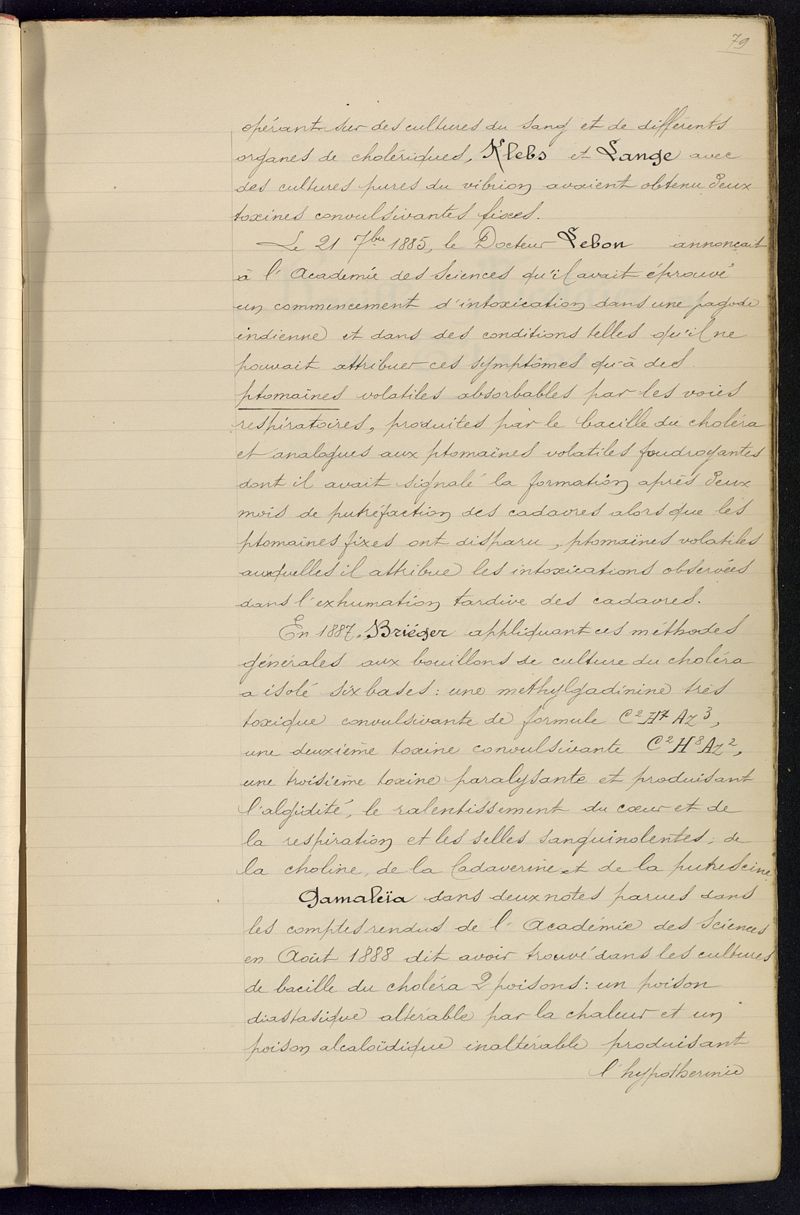 79
opérant sur des cultures du sang et de différents
organes de cholériques, Klebs et Lange avec
des cultures pures du vibrion avaient obtenu deux
toxines convulsivantes fixes.
Le 21 7bre 1885, le Docteur Lebon annonçait
à l'Académie des Sciences qu'il avait éprouvé
un commencement d'intoxication dans une pagode
indienne et dans des conditions telles qu'il ne
pouvait attribuer ces symptômes qu'à des
ptomaïnes volatiles absorbables par les voies
respiratoires, produites par le bacille du choléra
et analogues aux ptomaïnes volatiles foudroyantes
dont il avait signalé la formation après deux
mois de putréfaction des cadavres alors que les
ptomaïnes fixes ont disparu, ptomaïnes volatiles
auxquelles il attribue les intoxications observées
dans l'exhumation tardive des cadavres.
En 1887, Briéger appliquant ces méthodes
générales aux bouillons de culture du choléra
a isolé six bases: une methylgadinine très
toxique convulsivante de formule C²H⁷Az³,
une deuxième toxine convulsivante C²H⁸Az²,
une troisième toxine paralysante et produisant
l'algidité, le ralentissement du cœur et de
la respiration et les selles sanguinolentes; de
la choline, de la Cadaverine et de la putrescine.
Gamaleïa dans deux notes parues dans
les comptes rendus de l'Académie des Sciences
en Août 1888 dit avoir trouvé dans les cultures
de bacille du choléra 2 poisons: un poison
diastasique altérable par la chaleur et un
poison alcaloïdique inaltérable produisant
l'hypothermie